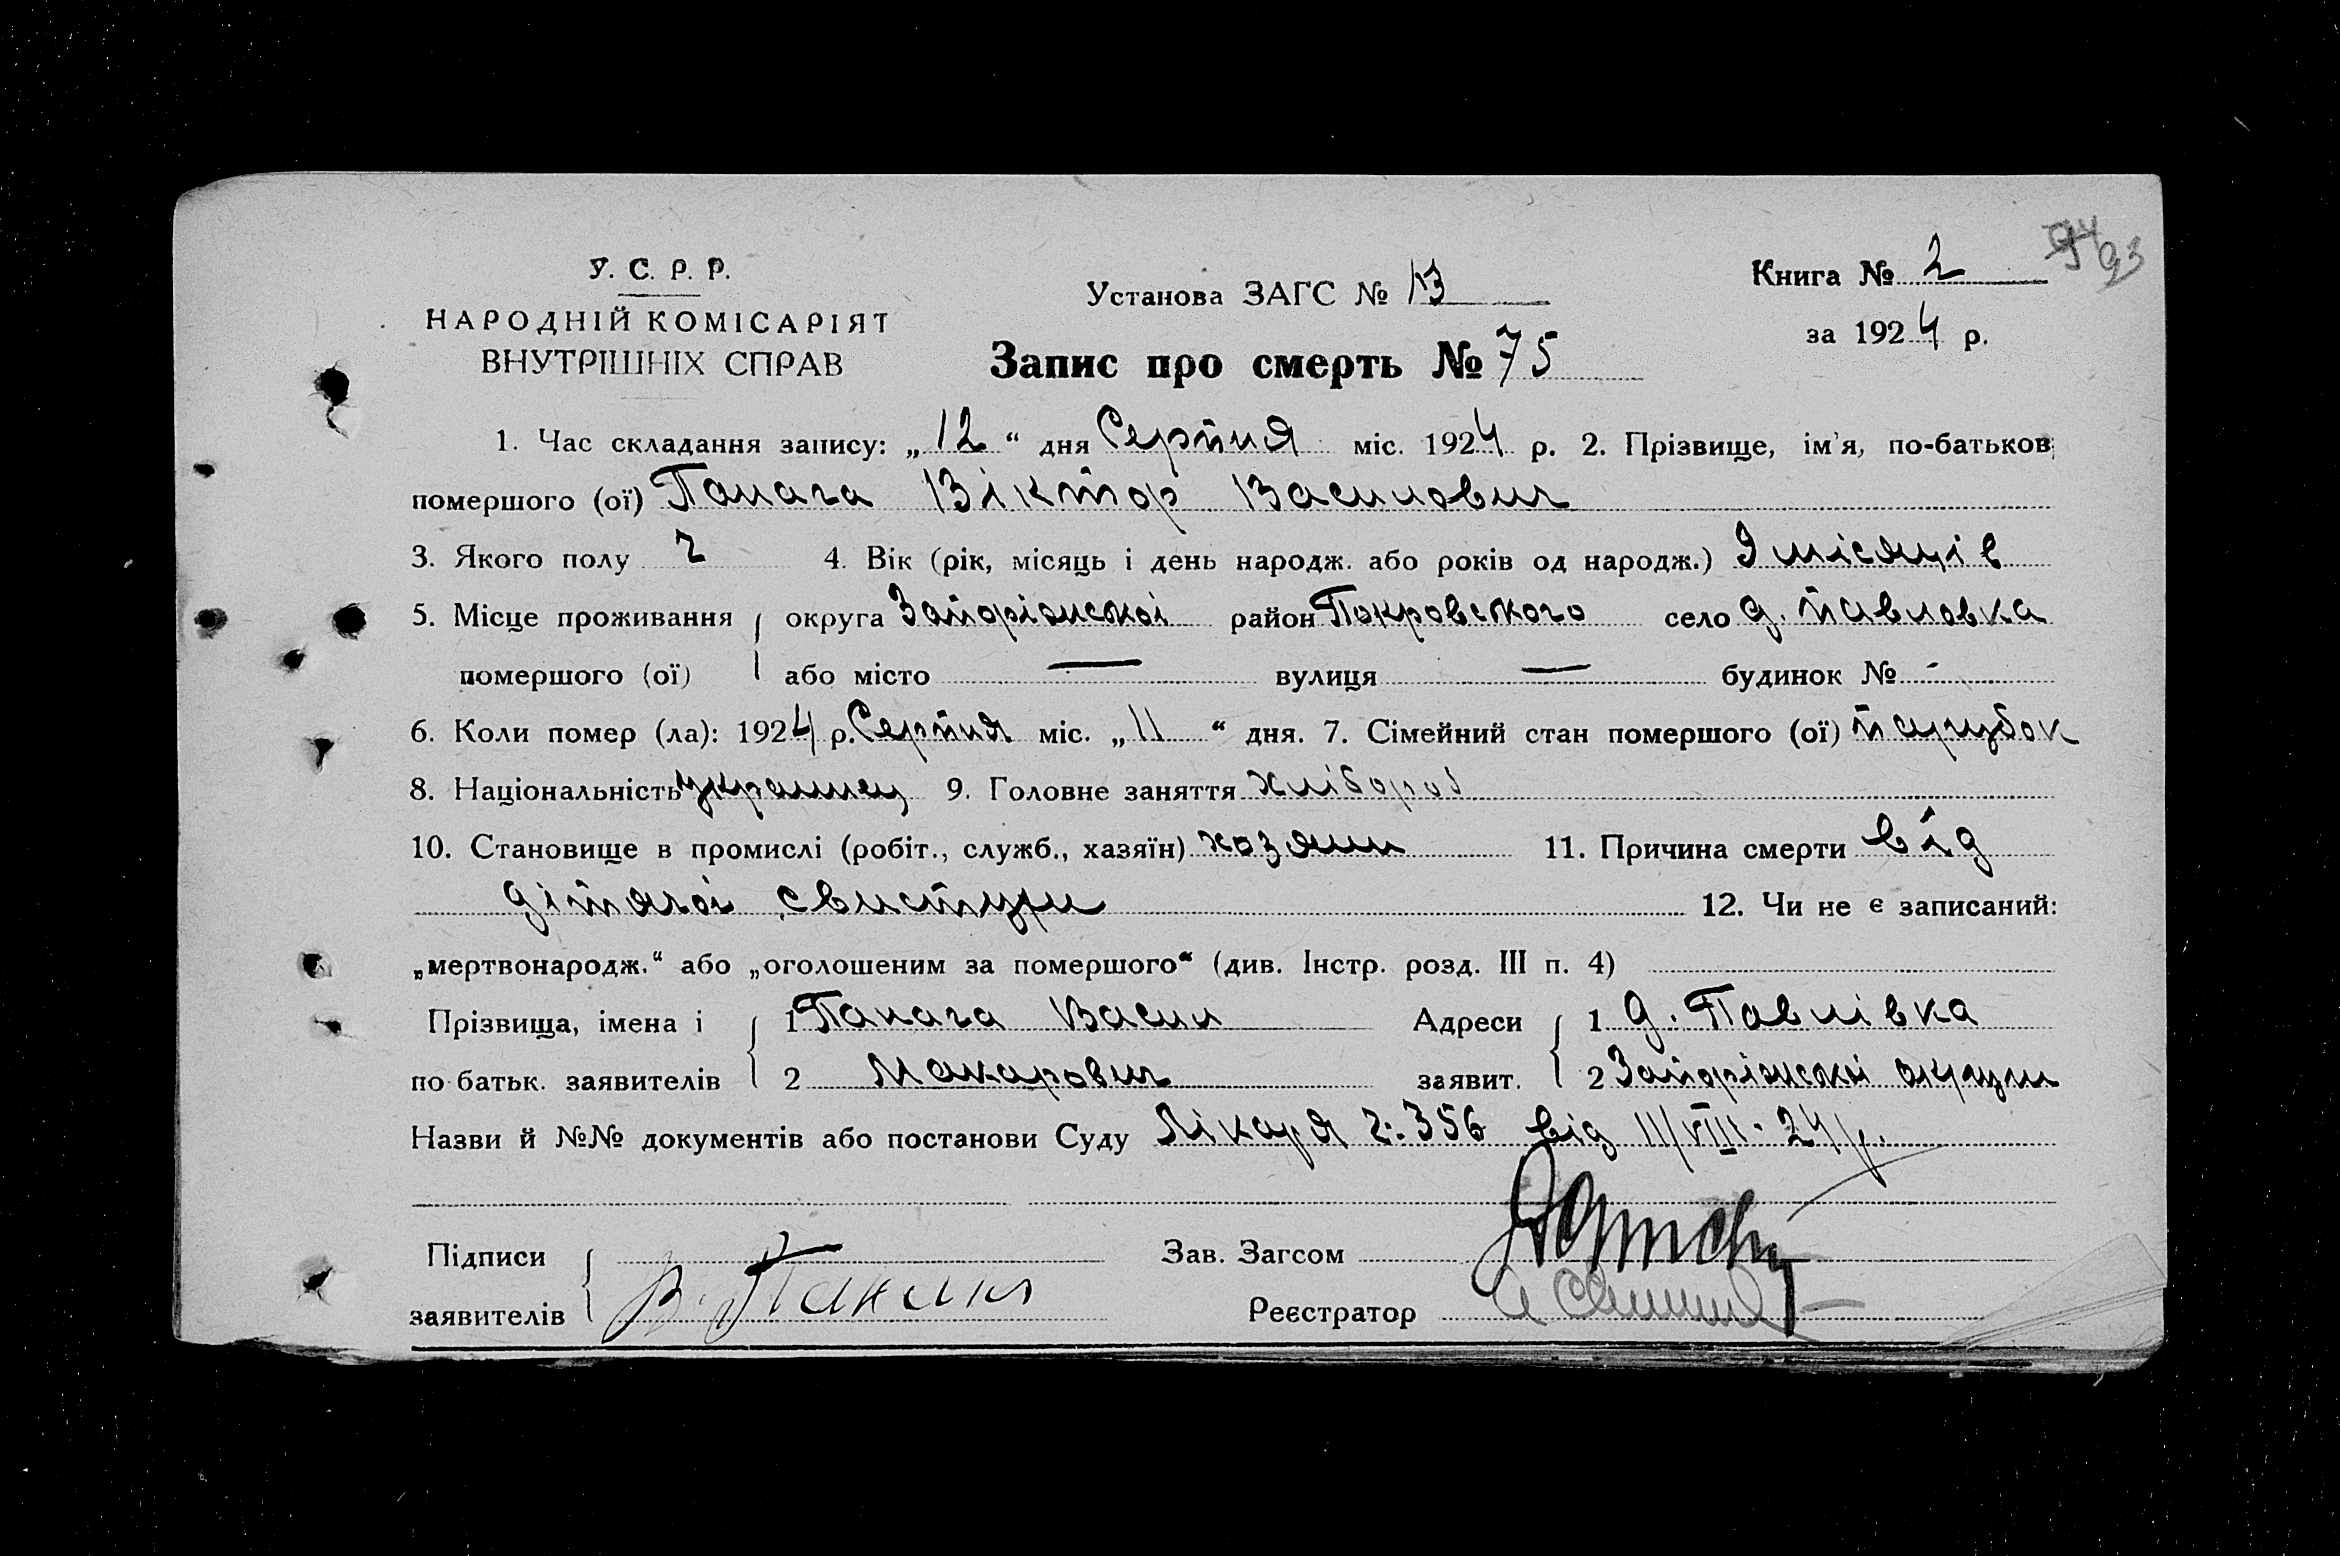 94 93
У. С. Р. Р.
НАРОДНІЙ КОМІСАРІЯТ
ВНУТРІШНІХ СПРАВ
Установа ЗАГС № 13
Книга № 2
за 1924 р.
Запис про смерть № 75
1. Час складання запису: „12“ дня Серпня міс. 1924 р. 2. Прізвище, ім'я, по-батькові
помершого (ої) Панага Віктор Василович
3. Якого полу ч 4. Вік (рік, місяць і день народж. або років од народж.) 9 місяців
5. Місце проживання округа Запоріжської район Покровського село д. павловка
помершого (ої) або місто — вулиця — будинок № -
6. Коли помер (ла): 1924 р. Серпня міс. „11“ дня. 7. Сімейний стан помершого (ої) парубок
8. Національність украинец 9. Головне заняття хлібороб
10. Становище в промислі (робіт., служб., хазяїн) хозяин 11. Причина смерти від
дітячої 12. Чи не є записаний:
„мертвонародж.“ або „оголошеним за помершого“ (див. Інстр. розд. III п. 4)
Прізвища, імена і 1 Панага Васил Адреси 1 д. Павлівка
по батьк. заявителів 2 Макарович заявит. 2 Запоріжської округи
Назви й №№ документів або постанови Суду Лікаря ч. 356 від 11/VIII-24 р.
Підписи Зав. Загсом
заявителів В. Реєстратор